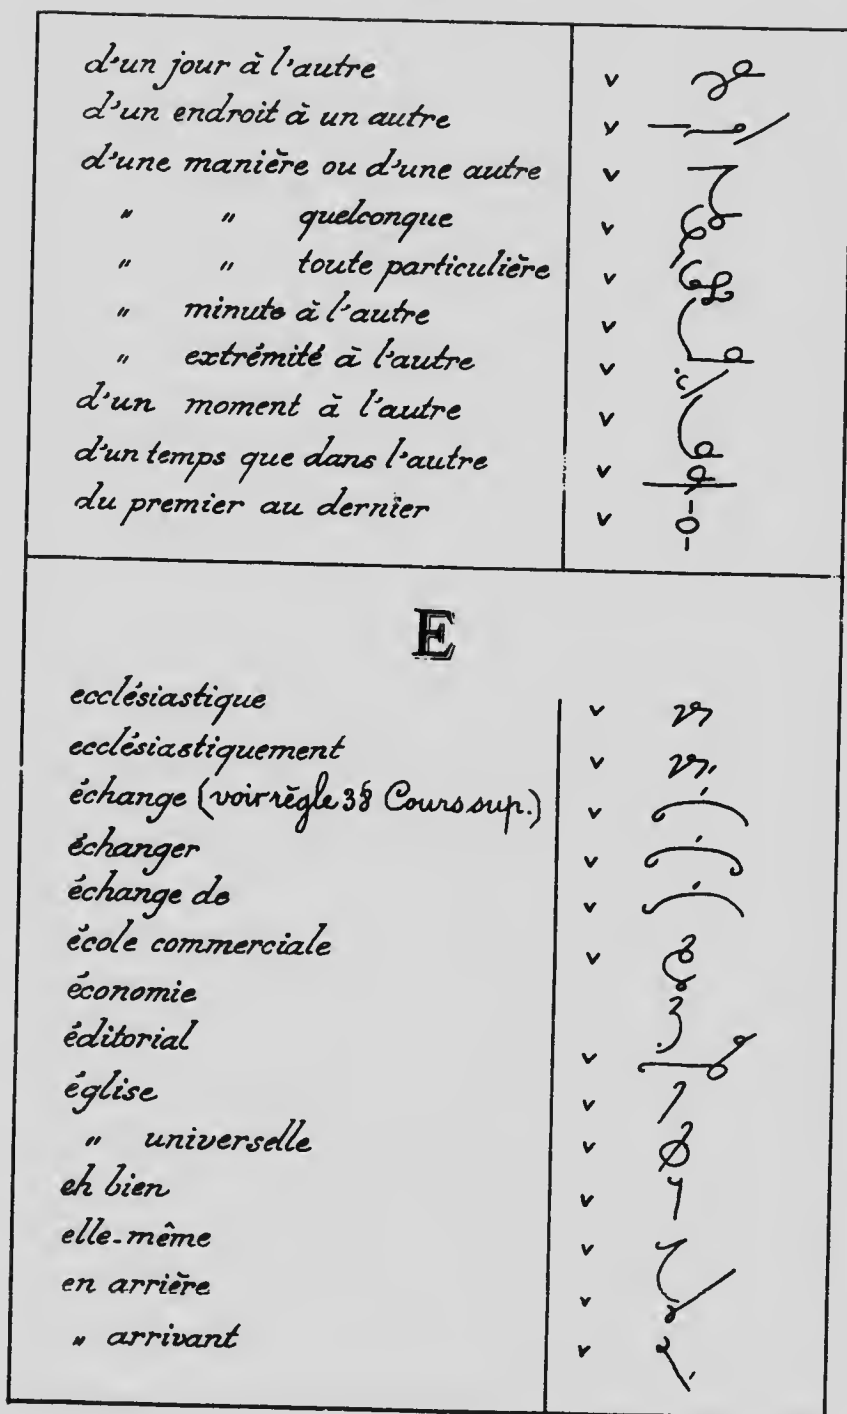 d'un jour à l'autre v
d'un endroit à un autre v
d'une manière ou d'une autre v
" " quelconque v
" " toute particulière v
" minute à l'autre v
" extrémité à l'autre v
d'un moment à l'autre v
d'un temps que dans l'autre v
du premier au dernier v
E
ecclésiastique v
ecclésiastiquement v
échange (voir règle 38 Cours sup.) v
échanger v
échange de v
école commerciale v
économie
éditorial v
église v
" universelle v
eh bien v
elle-même v
en arrière v
" arrivant v